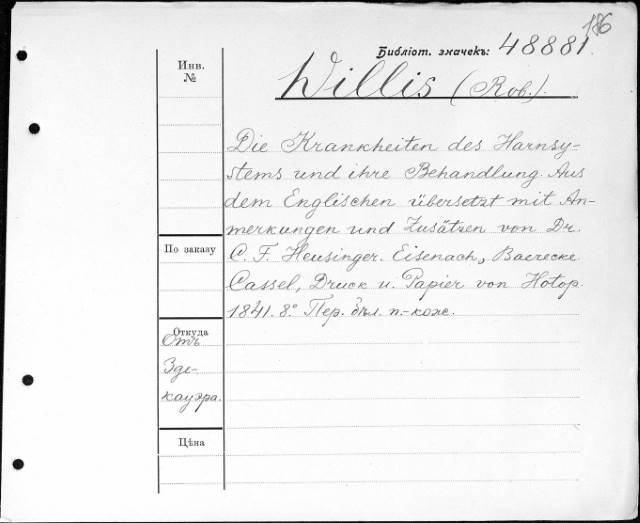 186
Библіот. значекъ: 48881.
Инв.
№
Willis (Rob.).
Die Krankheiten des Harnsy-
stems und ihre Behandlung. Aus
dem Englischen übersetzt mit An-
merkungen und Zusätzen von Dr.
По заказу
C. F. Heusinger. Eisenach, Baerecke
Cassel, Druck u. Papier von Hotop.
1841. 8.° Пер. бѣл. п.-кож.
Откуда
Отъ
Зде-
кауэра.
Цѣна